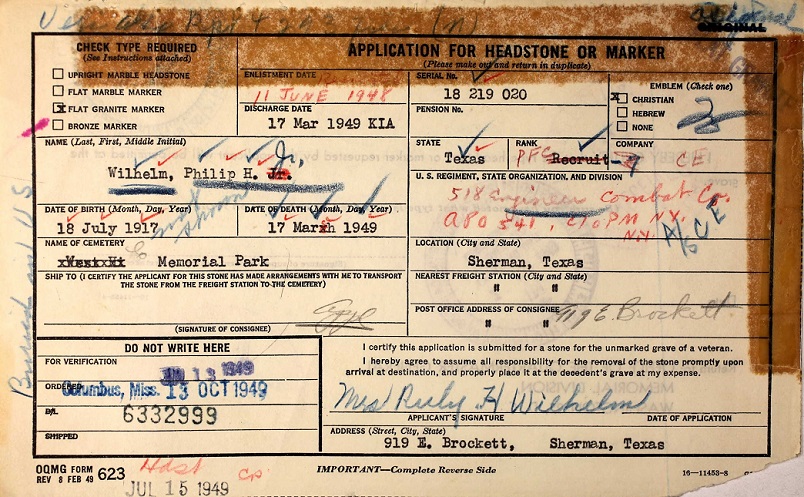 ORIGINAL
CHECK TYPE REQUIRED
(See Instructions attached)
UPRIGHT MARBLE HEADSTONE
FLAT MARBLE MARKER
x FLAT GRANITE MARKER
BRONZE MARKER
APPLICATION FOR HEADSTONE OR MARKER
(Please make out and return in duplicate)
ENLISTMENT DATE
11 JUNE 1948
DISCHARGE DATE
17 Mar 1949 KIA
SERIAL No.
18 219 020
PENSION No.
EMBLEM (Check one)
x CHRISTIAN
HEBREW
NONE
NAME (Last, First, Middle Initial)
Wilhelm, Philip H. Jr.
Jr,
STATE
Texas
RANK
PFC Recruit
COMPANY
CE
U. S. REGIMENT, STATE ORGANIZATION, AND DIVISION
518 Engineer Combat Co.
APO 541, c/o PM NY,
N.Y.
A/S CE
DATE OF BIRTH (Month, Day, Year)
18 July 1917
not shown
DATE OF DEATH (Month, Day, Year)
17 March 1949
NAME OF CEMETERY
xWest Ht Memorial Park
LOCATION (City and State)
Sherman, Texas
SHIP TO (I CERTIFY THE APPLICANT FOR THIS STONE HAS MADE ARRANGEMENTS WITH ME TO TRANSPORT
THE STONE FROM THE FREIGHT STATION TO THE CEMETERY)
(SIGNATURE OF CONSIGNEE)
NEAREST FREIGHT STATION (City and State)
" "
POST OFFICE ADDRESS OF CONSIGNEE
" "
919 E. Brockett.
Buried and U.S.
DO NOT WRITE HERE
FOR VERIFICATION
JUN 13 1949
ORDERED
Columbus, Miss. 13 OCT 1949
B/L
6332999
SHIPPED
I certify this application is submitted for a stone for the unmarked grave of a veteran.
I hereby agree to assume all responsibility for the removal of the stone promptly upon
arrival at destination, and properly place it at the decedent's grave at my expense.
Mrs Ruby H Wilhelm
APPLICANT'S SIGNATURE
DATE OF APPLICATION
ADDRESS (Street, City, State)
919 E. Brockett, Sherman, Texas
OQMG FORM
REV 8 FEB 49 623
IMPORTANT—Complete Reverse Side
16—11453-8
JUL 15 1949